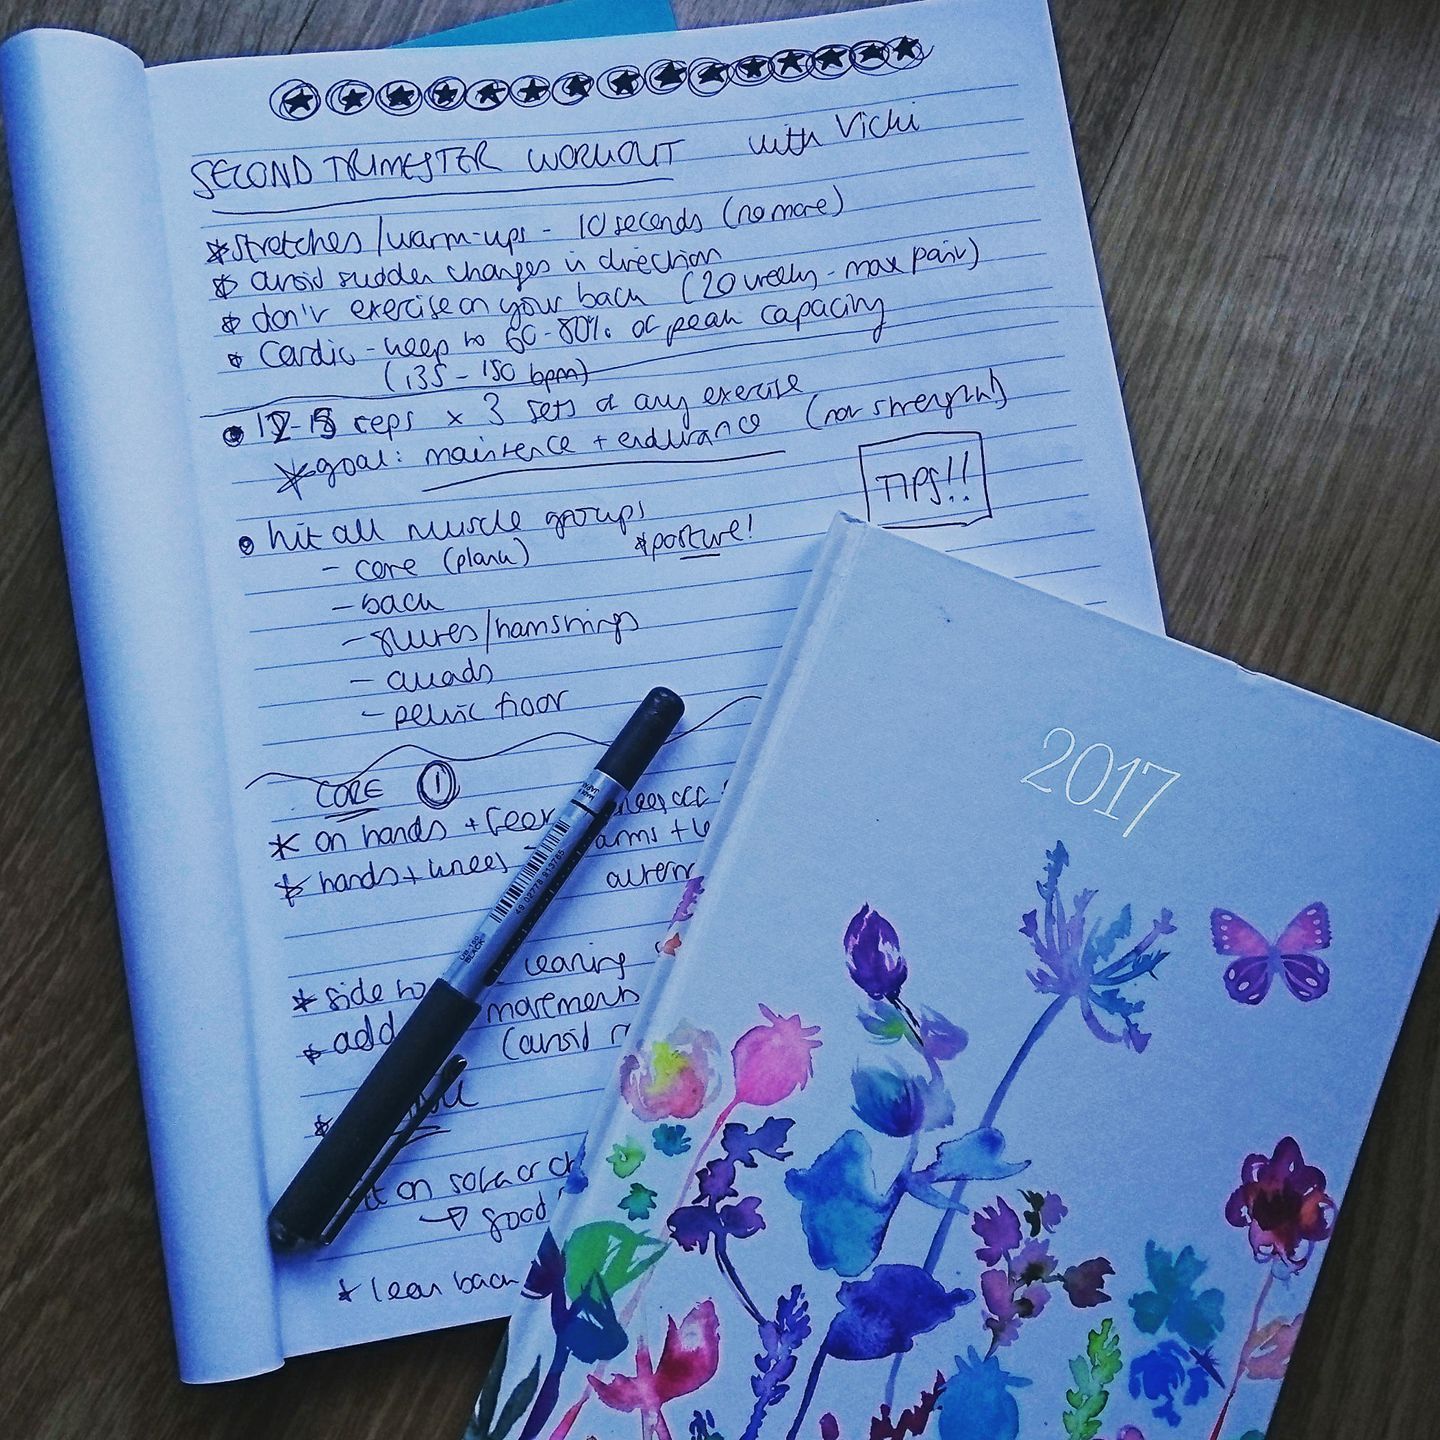 SECOND TRIMESTER WORKOUT with Vicki
* stretches/warm-ups - 10 seconds (no more)
* avoid sudden changes in direction
* don't exercise on your back (20 weeks - max pain)
* Cardio - keep to 60-80% of peak capacity
(135 - 150 bpm)
• 12-15 reps x 3 sets of any exercise
* goal: maintence + endurance (not strength!)
TIPS!!
• hit all muscle groups
* posture!
- core (plank)
- back
- glutes/hamstrings
- quads
- pelvic floor
CORE 1
* on hands + feet knees
* hands + knees arms +
altern
* side to leaning
* add movements
(avoid
*
on sofa or ch
→ good
* lean back
2017
uni-ball
UB-150
BLACK
49 02778 913765